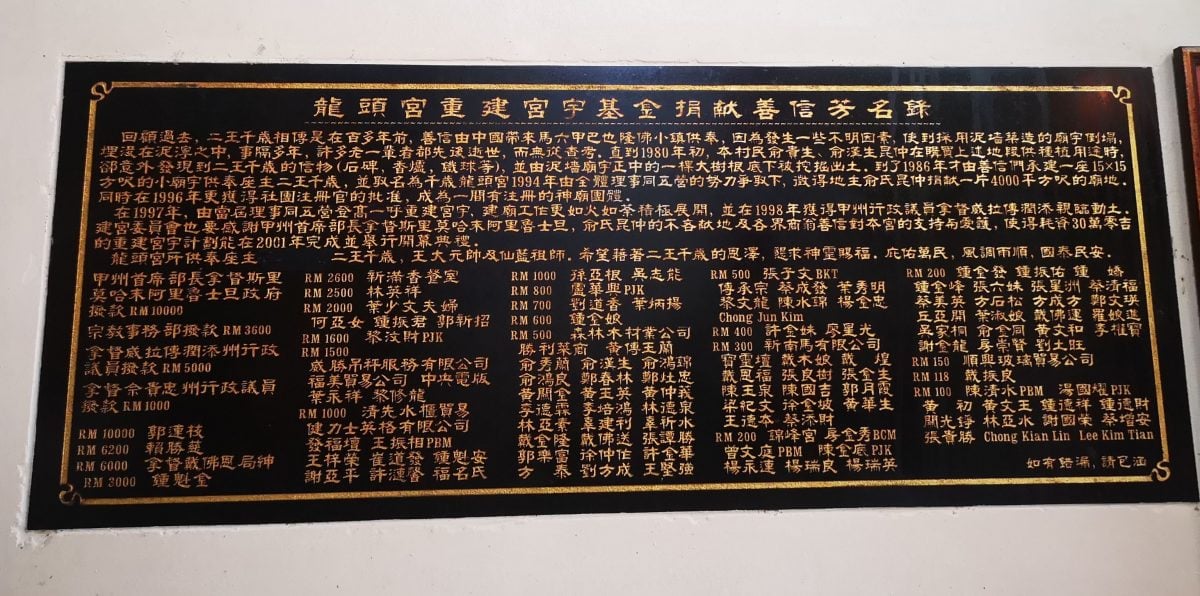 龍頭宮重建宮宇基金捐献善信芳名錄
回顧過去，二王千歲相傳是在百多年前，善信由中國帶來馬六甲巴也隆佛小鎮供奉，因為發生一些不明因素，使到採用泥墙築造的廟宇倒塌，
埋沒在泥濘之中，事隔多年，許多老一輩者都先後逝世，而無從查考。直到1980年初，本村民俞貴生、俞漢生昆仲在購買上述地段供種植用途時，
卻意外發現到二王千歲的信物(石碑，香爐，鐵球等)，並由泥墙廟宇正中的一棵大樹根底下被挖掘出土。到了1986年才由善信們承建一座15×15
方呎的小廟宇供奉座主二王千歲，並取名為千歲龍頭宮1994年由全體理事同五營的努力爭取下，獲得地主俞氏昆仲捐献一片4000平方呎的廟地。
同時在1996年更獲得社團注册官的批准，成為一間有注册的神廟團體。
在1997年，由當屆理事同五營登高一呼重建宮宇，建廟工作更如火如荼積極展開，並在1998年獲得甲州行政議員拿督威拉傅潤添親臨動土。
建宮委員會也要感謝甲州首席部長拿督斯里莫哈末阿里魯士旦，俞氏昆仲的不吝献地及各界商翁善信對本宮的支持和愛護，使得耗資30萬零吉
的重建宮宇計劃能在2001年完成並舉行開幕典禮。
龍頭宮所供奉座主 二王千歲，王大元師及仙藍祖師。希望藉著二王千歲的恩澤，懇求神靈賜福。庇佑萬民，風調雨順，國泰民安。
甲州首席部長拿督斯里
莫哈末阿里魯士旦政府
撥款 RM 10000
宗教事務部撥款 RM 3600
拿督威拉傅潤添州行政
議員撥款 RM 5000
拿督佘貴忠州行政議員
撥款 RM 1000
RM 10000 郭運枝
RM 6200 賴勝慈
RM 6000 拿督戴佛恩局紳
RM 3000 鍾魁金
RM 2600 新滿香餐室
RM 2500 林英祥
RM 2000 葉少文夫婦
何亞女 鍾振君 郭新招
RM 1600 黎汶財PJK
RM 1500
威勝吊秤服務有限公司
福美貿易公司 中央電版
葉永祥 黎修龍
RM 1000 清先水櫃貿易
健力士英格有限公司
發福壇 王振相PBM
王祥榮 崔道發 鍾魁安
謝亞平 許漣馨 福名氏
RM 1000 孫亞根 吳志能
RM 800 盧華興PJK
RM 700 劉道香 葉炳揚
RM 600 鍾金娘
RM 500 森林木材業公司
勝利菜商 黃傅玉蘭
俞秀蘭 俞漢生 俞鴻錦
俞鴻良 鄭春林 鄭灶忠
黃關金 黃玉英 黃仲義
李德霖 李培鴻 林德泉
林亞素 辜建利 辜祈水
戴金隆 戴佛送 張譚勝
郭樂富 徐仲作 許金華
方 泰 劉方成 王堅強
RM 500 張子文BKT
傅承宗 蔡成發 葉秀明
黎文龍 陳水錦 楊金忠
Chong Jun Kim
RM 400 許金妹 廖星光
RM 300 新南馬有限公司
寶靈壇 戴木娘 戴 煌
戴恩福 張良樹 張金生
陳玉泉 陳國吉 郭月霞
梁祀文 徐金妓 黃華生
王德本 蔡添財
RM 200 錦峰宮 房金秀BCM
曾文庭PBM 陳金底PJK
楊永蓮 楊瑞良 楊瑞英
RM 200 鍾金發 鍾振佑 鍾 嬌
鍾金峰 張六妹 張星洲 蔡清福
蔡美英 方石松 方成方 鄭文瑛
丘亞開 葉淑娘 戴佛運 羅娘進
吳家桐 俞金同 黃文和 李權寶
謝金龍 房崇賢 劉土旺
RM 150 順興玻璃貿易公司
RM 118 戴振良
RM 100 陳清水PBM 湯國耀PJK
黃 初 黃文玉 鍾德祥 鍾德財
關光錚 林亞水 謝國榮 蔡增安
張貴勝 Chong Kian Lin Lee Kim Tian
如有錯漏，請包涵